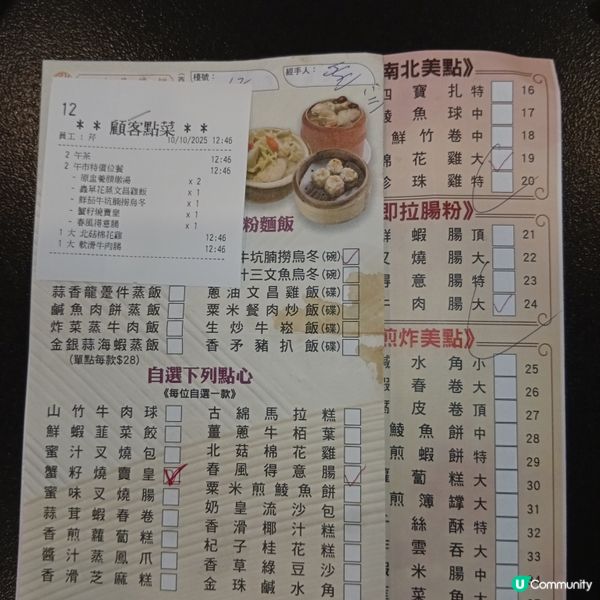 檯號：
經手人：
12
** 顧客點菜 **
員工：芬 10/10/2025 12:46
2 午茶 12:46
2 午市特價位餐 12:46
- 原盅養顏燉湯 x 2
- 蟲草花蒸文昌雞飯 x 1
- 鮮茄牛坑腩撈烏冬 x 1
- 蟹籽燒賣皇 x 1
- 春風得意腸 x 1
1 大 北菇棉花雞 12:46
1 大 軟滑牛肉腸 12:46
粉麵飯
牛坑腩撈烏冬(碗)
汁三文魚烏冬(碗)
蒜香龍躉件蒸飯
蔥油文昌雞飯(碟)
鹹魚肉餅蒸飯
粟米餐肉炒飯(碟)
炸菜蒸牛肉飯
生炒牛崧飯(碟)
金銀蒜海蝦蒸飯
香矛豬扒飯(碟)
(單點每款$28)
自選下列點心
《每位自選一款》
山竹牛肉球
古綿馬拉糕
鮮蝦韮菜餃
薑蔥牛栢葉
蜜汁叉燒包
北菇棉花雞
蟹籽燒賣皇
春風得意腸
蜜味叉燒腸
粟米煎鯪魚餅
蒜茸蝦春卷
奶皇流沙包
香煎蘿蔔糕
香滑椰汁糕
醬汁蒸鳳爪
杞子桂花糕
香滑芝麻糕
香草綠豆沙
金珠鹹水角
南北美點》
四寶扎 特 16
鯪魚球 中 17
鮮竹卷 中 18
棉花雞 大 19
珍珠雞 特 20
即拉腸粉》
鮮蝦腸 頂 21
叉燒腸 大 22
得意腸 特 23
牛肉腸 大 24
煎炸美點》
鹹水角 小 25
春卷 大 26
腐皮卷 頂 27
鯪魚餅 中 28
煎蝦餅 特 29
蘿蔔糕 大 30
煎薄罉 大 31
絲酥 特 32
雲吞 中 33
米腸 大
沙角 特
U Community